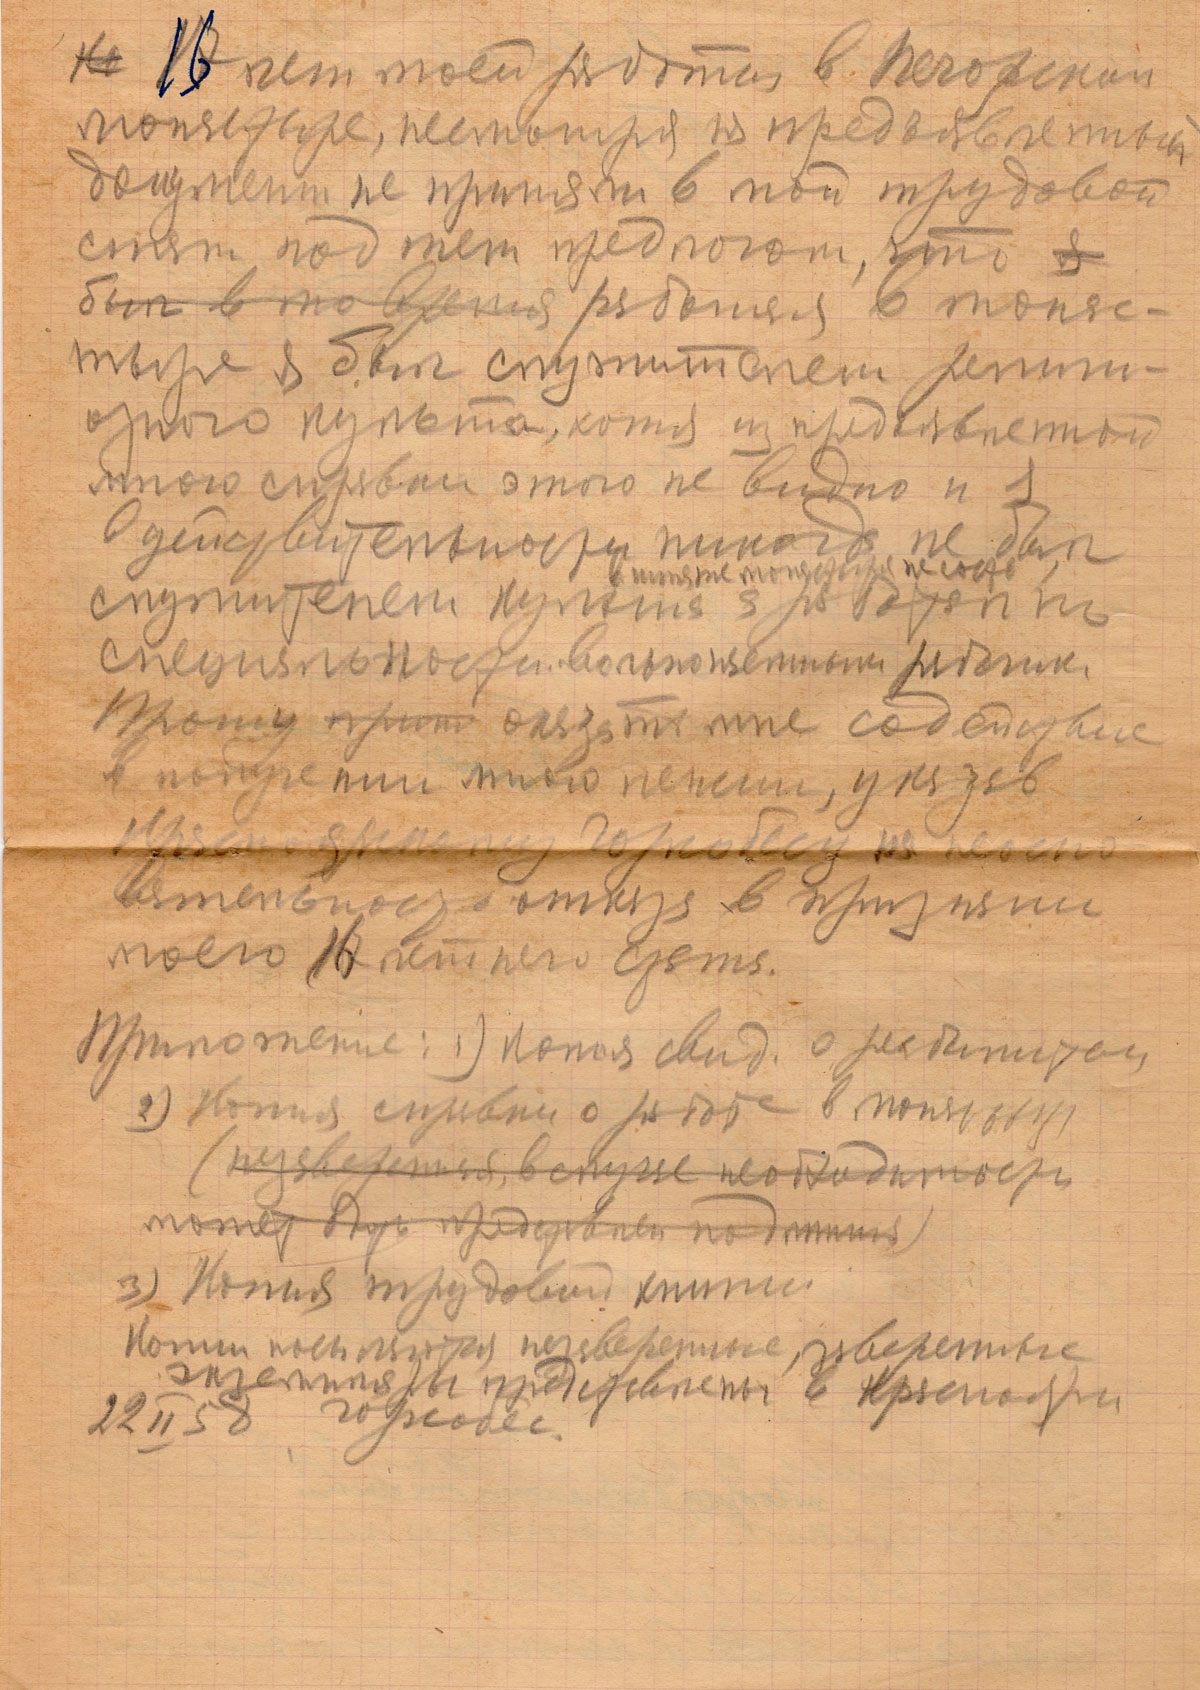 16 лет моей работы в Печорском
монастыре, несмотря на предъявленный
документ не приняли в мой трудовой
стаж под тем предлогом, что я
был в то время работая в монас-
тыре я был служителем религи-
озного культа, хотя из предъявленной
мною справки этого не видно и я
в действительности никогда не был
в штате монастыря не состоял
служителем культа а работал по
специальности вольнонаемным рабочим.
Прошу прин оказать мне содействие
в получении мною пенсии, указав
Красноярскому Горсобесу на неосно
вательность отказа в признании
моего 16 летнего стажа.
Приложение: 1) Копия свид. о реабилитации
2) Копия справки о работе в монастыре
(незаверенная, в случае необходимости
может быть представлен подлинник)
3) Копия трудовой книжки
Копии посылаются незаверенные, заверенные
экземпляры представлены в Красноярский
22 II 58 горсобес.